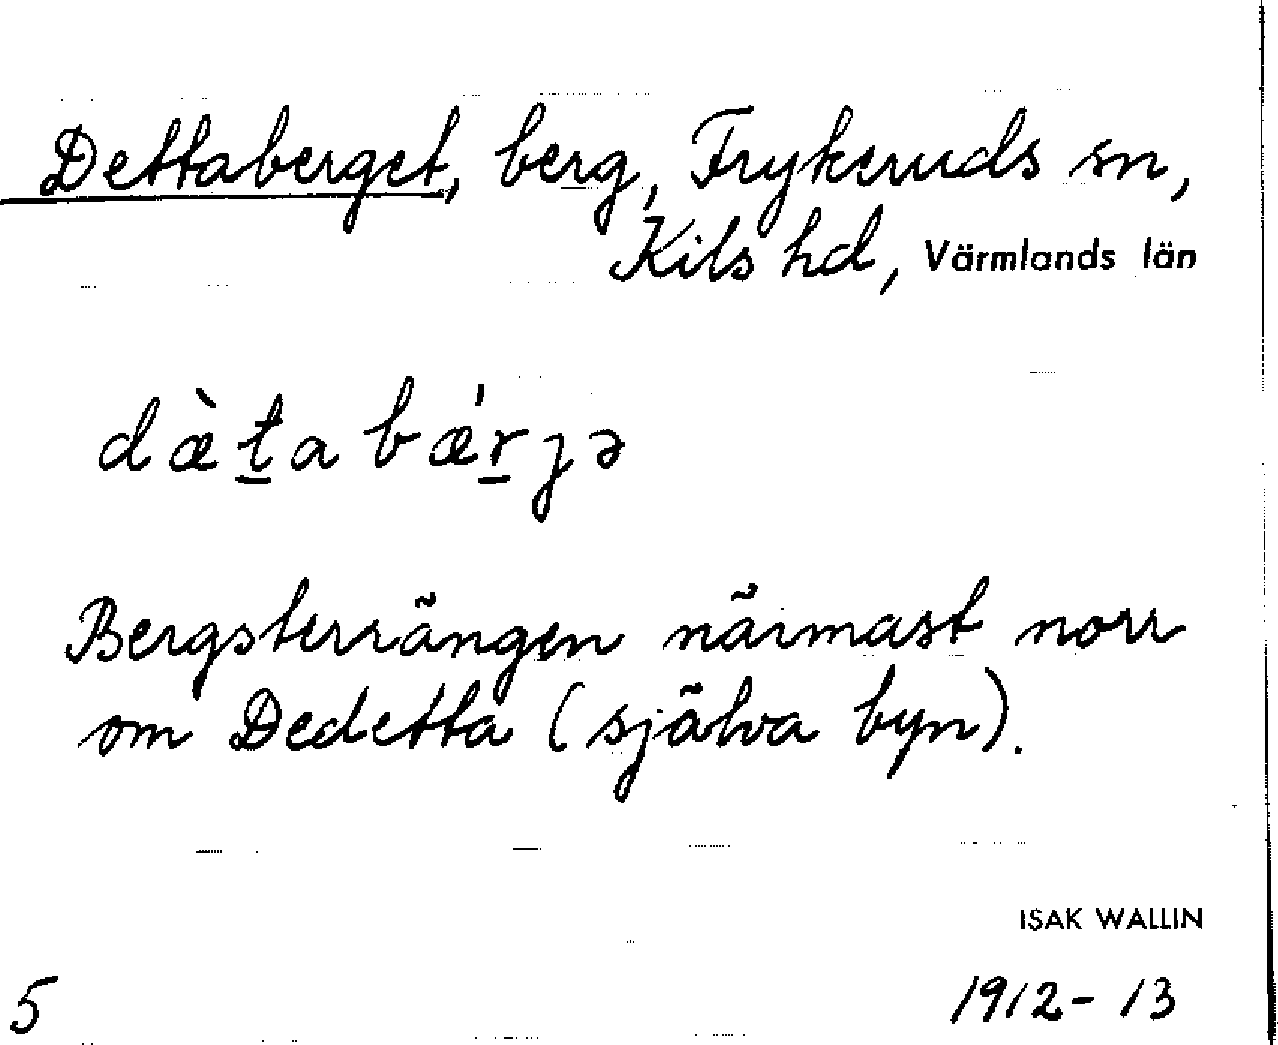 Dettaberget, berg, Frykeruds sn,
Kils hd, Värmlands län
dæ̀ṯabǽṟjə
Bergsterrängen närmast norr
om Dedetta (själva byn).
ISAK WALLIN
5 1912-13